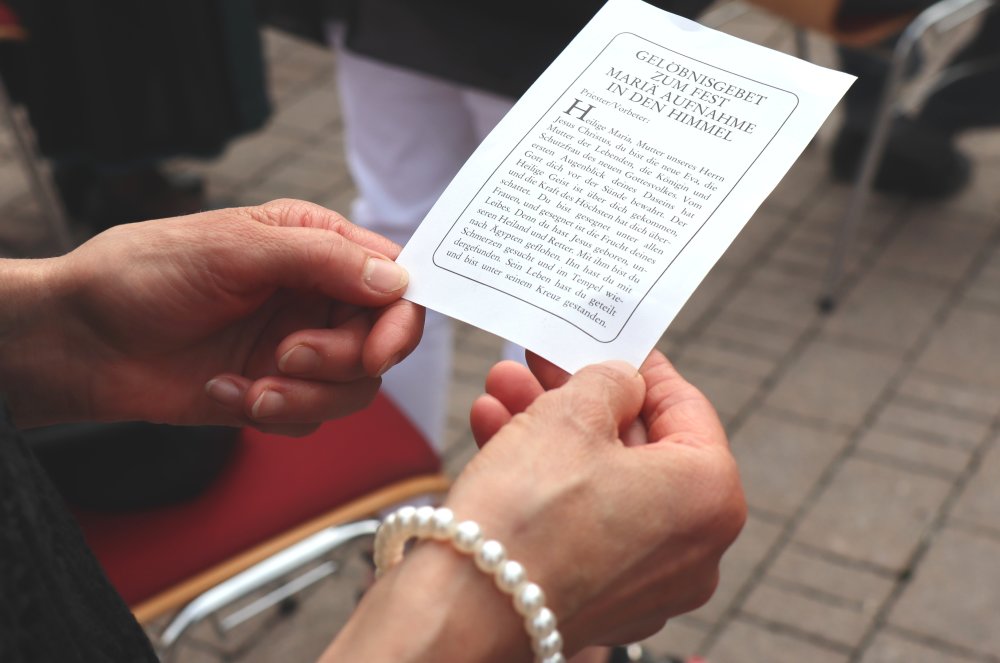 GELÖBNISGEBET
ZUM FEST
MARIÄ AUFNAHME
IN DEN HIMMEL
Priester/Vorbeter:
Heilige Maria, Mutter unseres Herrn
Jesus Christus, du bist die neue Eva, die
Mutter der Lebenden, die Königin und
Schutzfrau des neuen Gottesvolkes. Vom
ersten Augenblick deines Daseins hat
Gott dich vor der Sünde bewahrt. Der
Heilige Geist ist über dich gekommen,
und die Kraft des Höchsten hat dich über-
schattet. Du bist gesegnet unter allen
Frauen, und gesegnet ist die Frucht deines
Leibes. Denn du hast Jesus geboren, un-
seren Heiland und Retter. Mit ihm bist du
nach Ägypten geflohen. Ihn hast du mit
Schmerzen gesucht und im Tempel wie-
dergefunden. Sein Leben hast du geteilt
und bist unter seinem Kreuz gestanden.